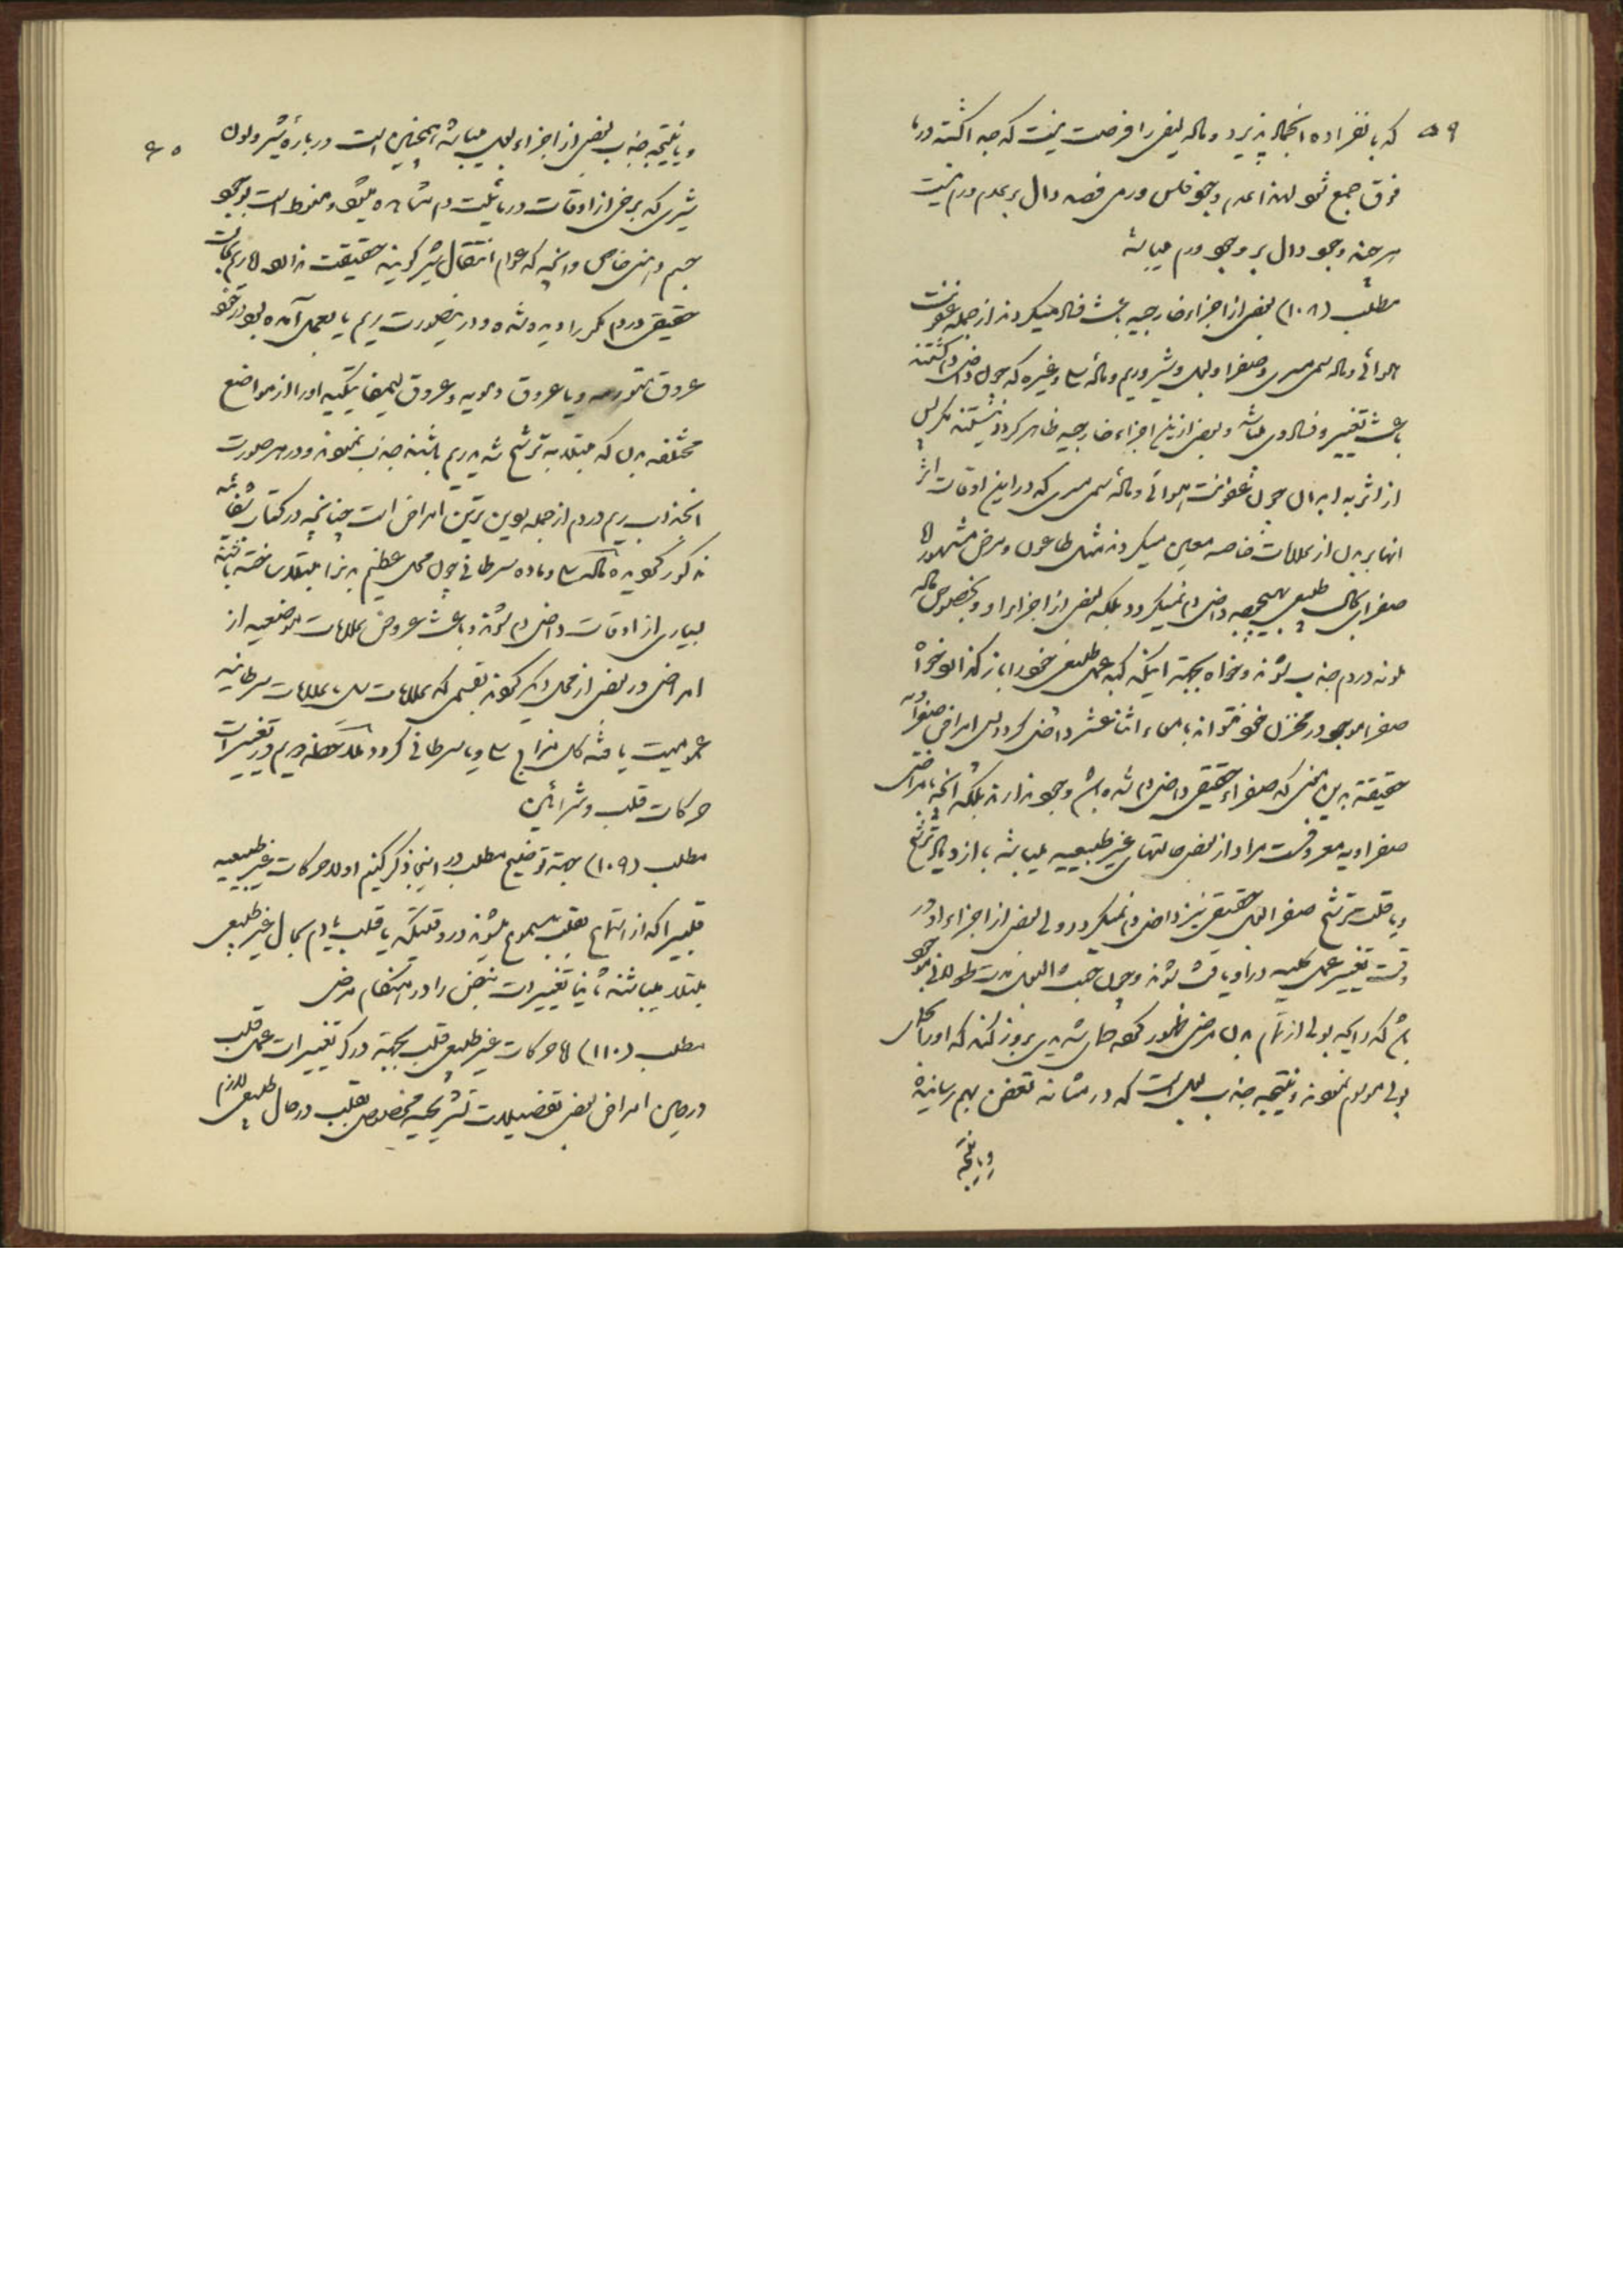 ۵۹
که بانفراده انجماد پذیرد و ماده لیفی را فرصت نیست که جدا گشته در بالا
فوق جمع شود لهذا عدم وجود فلس ورمی فصد دال بر عدم ورم نیست
هر چند وجود دال بر وجود ورم میباشد
مطلب (۱۰۸) بعضی از اجزاء خارجیه باعث فساد میگردند از جمله عفونت
هوائی و ماده سمی مسری و صفرا و بول و شیر و ریم و ماده سل و غیره که چون داخل دم گشتند
باعث تغییر و فساد وی میباشند و بعضی از این اجزاء خارجیه ظاهر کرده نیستند مگر پس
از اثر به ابدان چون عفونت هوائی و ماده سمی مسری که در این اوقات اثر
انها بر بدن از علامات خاصه معین میگردند مثل طاعون و مرض مشهور اما
صفرا بحالت طبیعی بهیچوجه داخل دم نمیگردد بلکه بعضی از اجزاء او و بخصوص ماده
ملونه در دم جذب شوند و خواه بجهة اینکه کبد عمل طبیعی خود را باز گذارد و خواه
صفرا موجود در مخزن خود نتواند بامعاء اثنا عشر داخل گردد پس امراض صفراویه
حقیقة بدین معنی که صفراء حقیقی داخل دم شده باشد وجود ندارند بلکه آنچه بامراض
صفراویه معروفست مراد از بعضی حالتهای غیر طبیعیه میباشد با ازدیاد ترشح
و یا قلت ترشح صفرا بول حقیقی نیز داخل دم نمیگردد ولی بعضی از اجزاء او در
وقت تغییر عمل کلیه در او یافت شوند و چون حبس البول مدت طولانی موجود
باشد که رایحه بولی از تمام بدن مریض ظهور کرده حمای شدیدی بروز کند که او را حمای
بولی موسوم نموده نتیجه جذب بول است که در مثانه تعفن بهم رسانیده
و یا نتیجه
۶۰
و یا نتیجه جذب بعضی از اجزاء بول میباشد همچنین است درباره شیر و لون
شیری که برخی از اوقات در مائیت دم مشاهده میشود و منوط است بوجود
جسم دهنی خاص و آنچه که عوام انتقال شیر گویند حقیقت ندارد اما ریم بحالت
حقیقی در دم مکرر دیده شده و در اینصورت ریم یا بعمل آمده بود در خود
عروق متورمه و یا عروق دمویه و عروق لیمفاتیکیه او را از مواضع
مختلفه بدن که مبتلا به ترشح شدید ریم باشند جذب نمودند و در هر صورت
انجذاب ریم در دم از جمله بدین ترین امراض است چنانچه در کتاب شفائیه
مذکور گردیده ماده سل و ماده سرطانی چون محلی عظیم بدن را مبتلا ساخته باشند
بسیاری از اوقات داخل دم شوند و باعث عروض علامات موضعیه از
امراض در بعضی از محل دیگر گردند بقسمی که علامات سل و علامات سرطانیه
عمومیت یافته کل مزاج سل و یا سرطانی گردد ملاحظه دویم در تغییرات
حرکات قلب و شرائین
مطلب (۱۰۹) بجهة توضیح مطلب در اینجا ذکر کنیم اولا حرکات غیر طبیعیه
قلبیرا که از استماع بقلب مسموع میشوند در وقتیکه یا قلب یا دم بحال غیر طبیعی
مبتلا میباشند ثانیا تغییرات نبض را در هنگام مرض
مطلب (۱۱۰) اما حرکات غیر طبیعی قلب بجهة درک تغییرات عمل قلب
در حین امراض بعضی تفضیلات تشریحیه مخصوص بقلب در حال طبیعی لازم